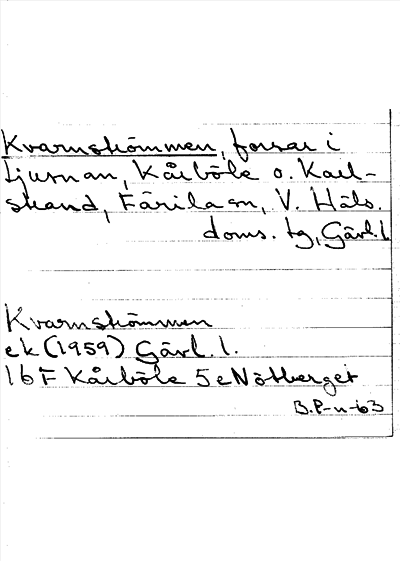 Kvarnströmmen, forsar i
Ljusnan, Kårböle o. Karl-
strand, Färila sn, V. Häls.
doms. tg, Gävl. l.
Kvarnströmmen
ek (1959) Gävl. l.
16 F Kårböle 5 e Nötberget
B.P-n-63